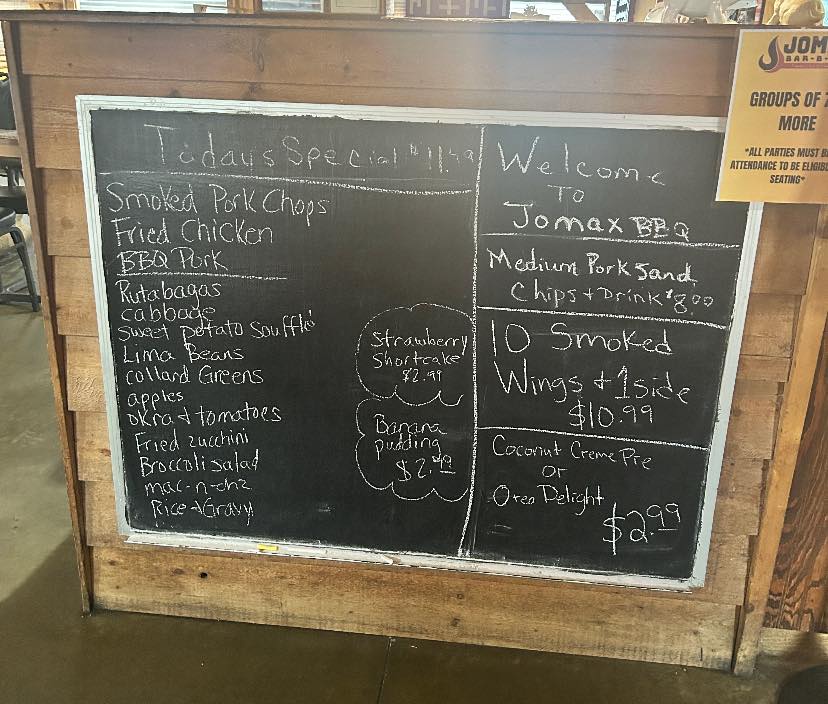 Today's Special $11.49
Smoked Pork Chops
Fried Chicken
BBQ Pork
Rutabagas
cabbage
sweet potato Souffle'
Lima Beans
collard Greens
apples
okra + tomatoes
Fried zucchini
Broccoli salad
mac-n-chz
Rice + Gravy
Strawberry
Shortcake
$2.99
Banana
pudding
$2.49
Welcome
To
Jomax BBQ
Medium Pork Sand
Chips + Drink $8.00
10 Smoked
Wings + 1 side
$10.99
Coconut Creme Pie
or
Oreo Delight
$2.99
JOM
BAR-B-
GROUPS OF
MORE
*ALL PARTIES MUST
ATTENDANCE TO BE
SEATING*